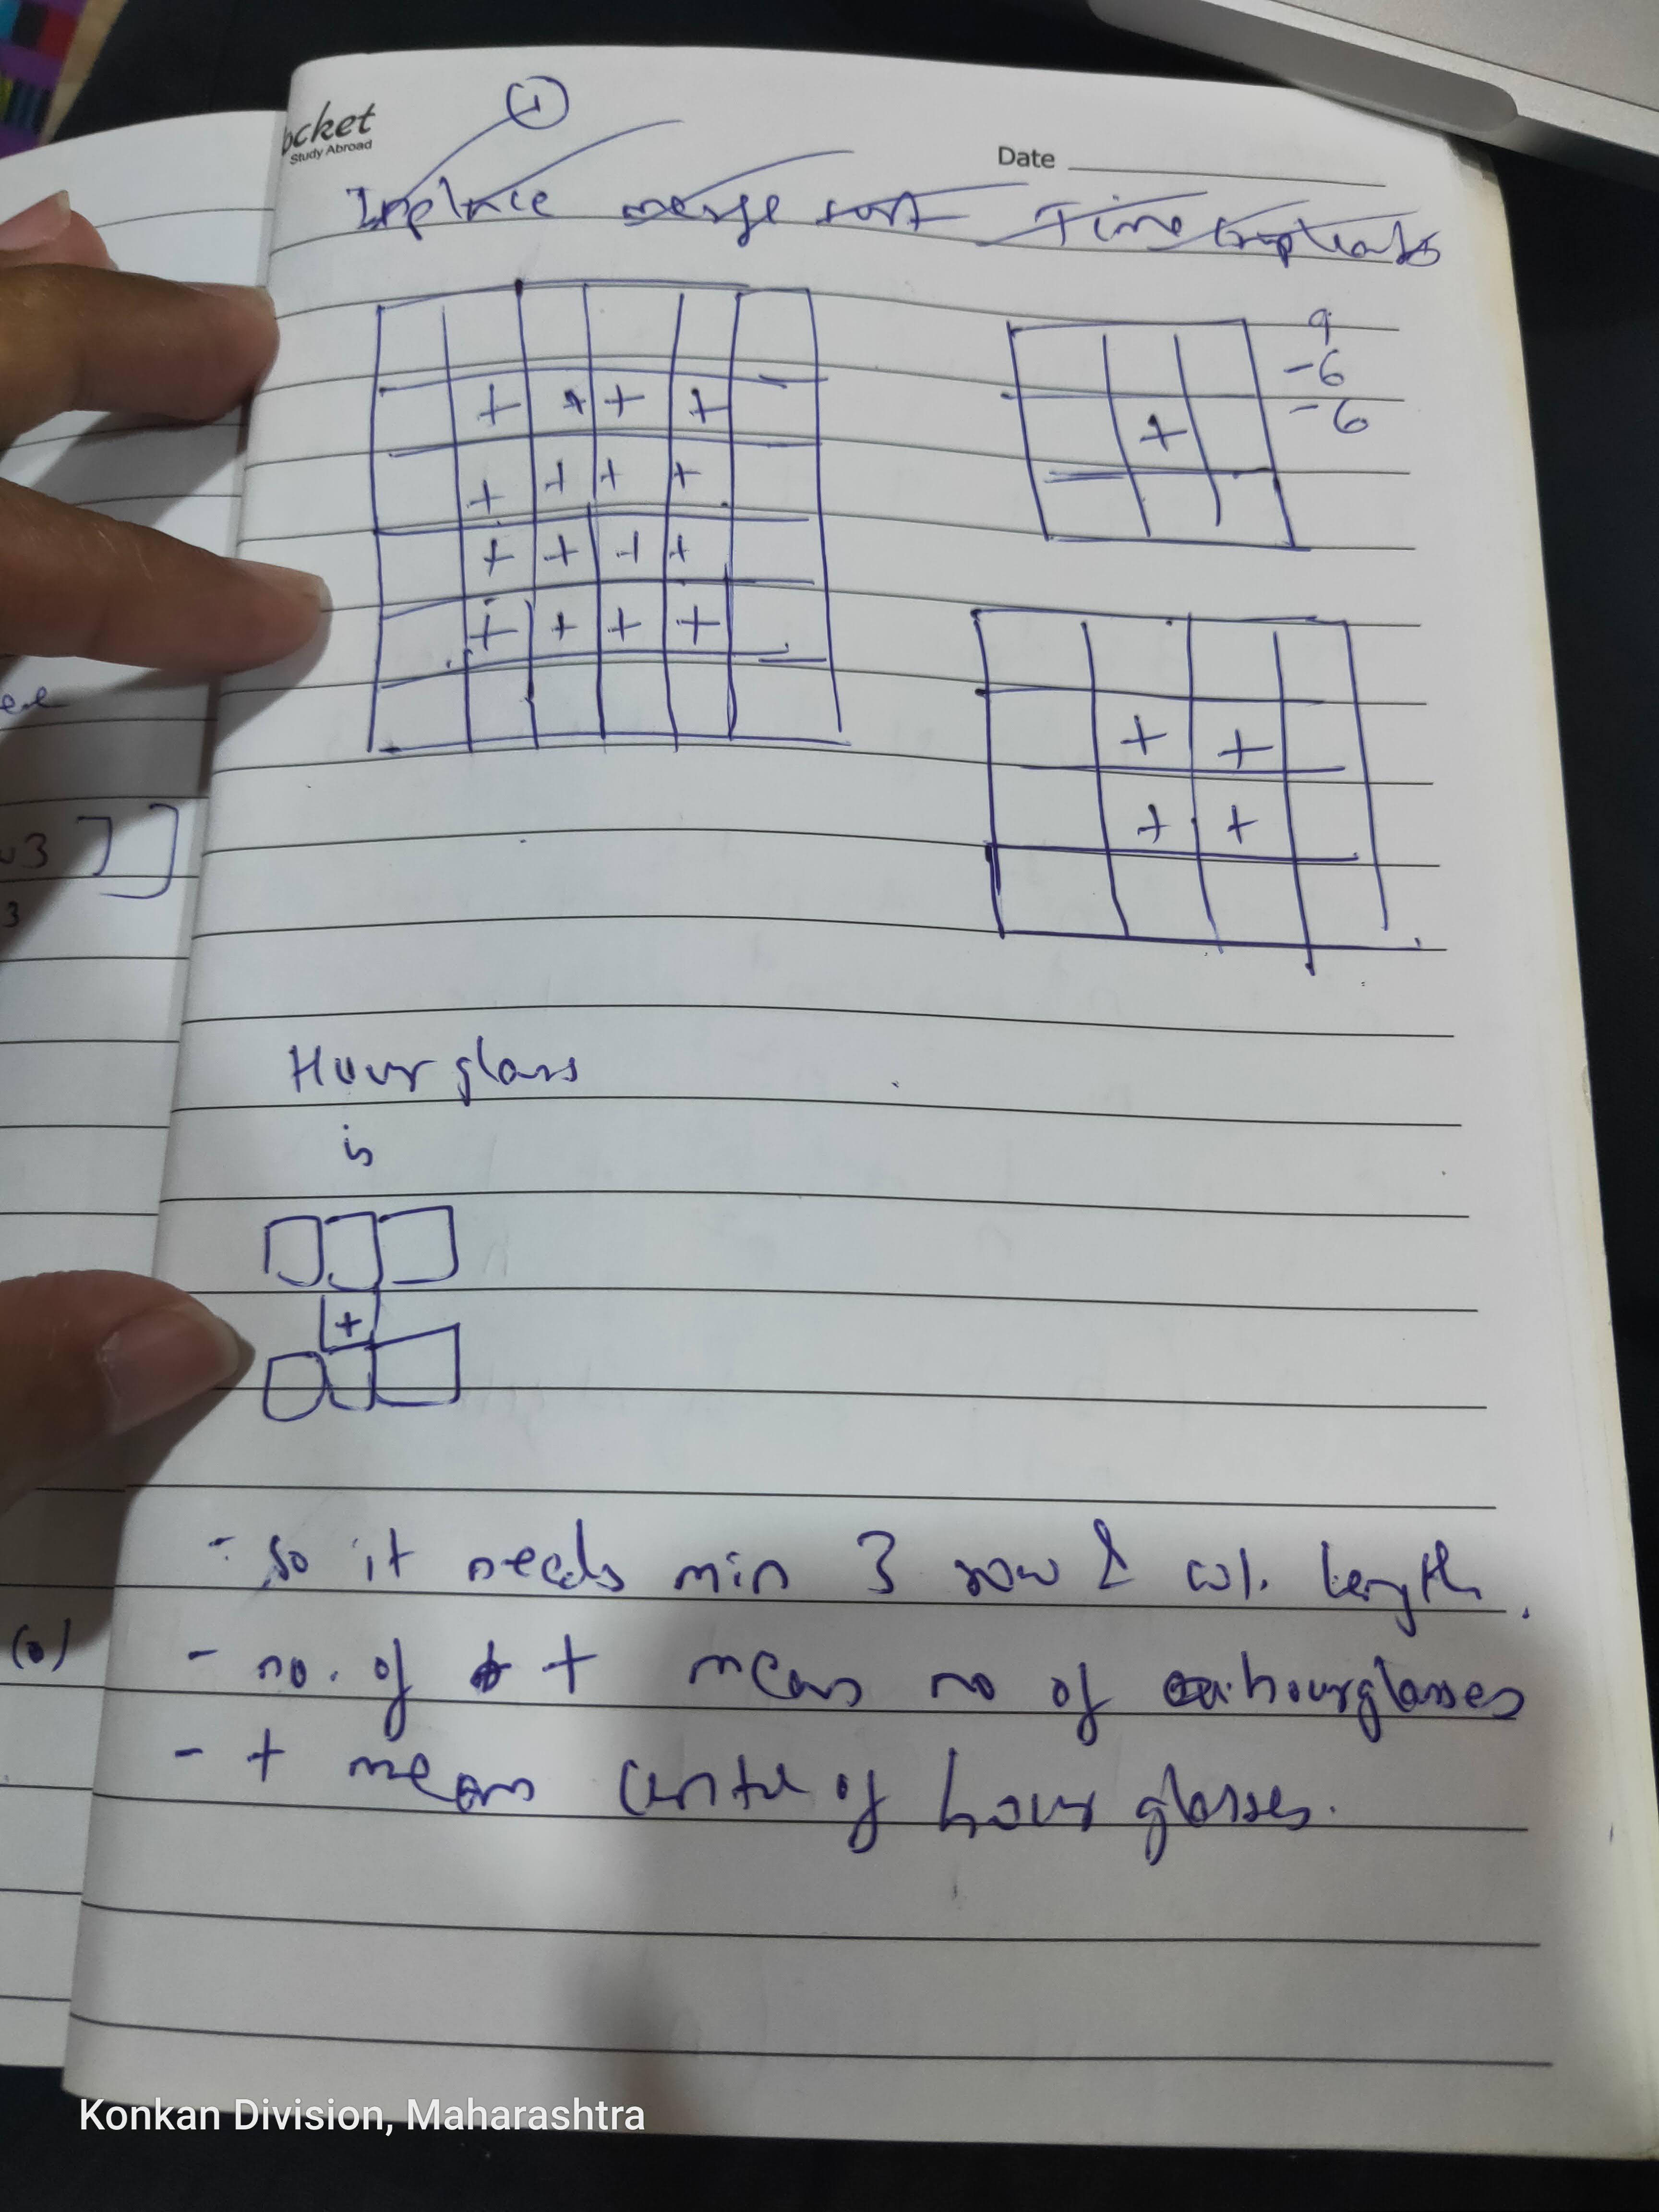 ocket
Study Abroad
Date
1
Inplace merge sort Time
+ + + +
+ + + +
+ + + +
+ + + +
9
-6
-6
+
+ +
+ +
Hour glass
is
+
- so it needs min 3 row & col. length.
- no. of + means no of hourglasses
- + means centre of hour glasses.
3
3
(0)
Konkan Division, Maharashtra